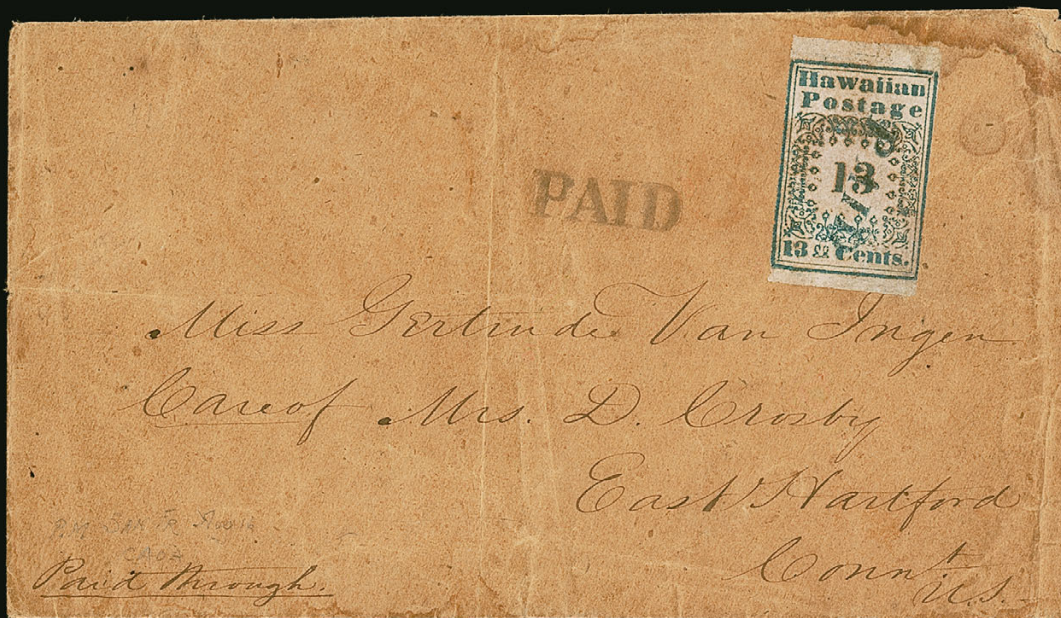 Hawaiian
Postage
13
13 Cents.
PAID
PAID
Miss Gertrude Van Ingen
Care of Mrs. D. Crosby
East Hartford
Connt
U.S.
Paid through.